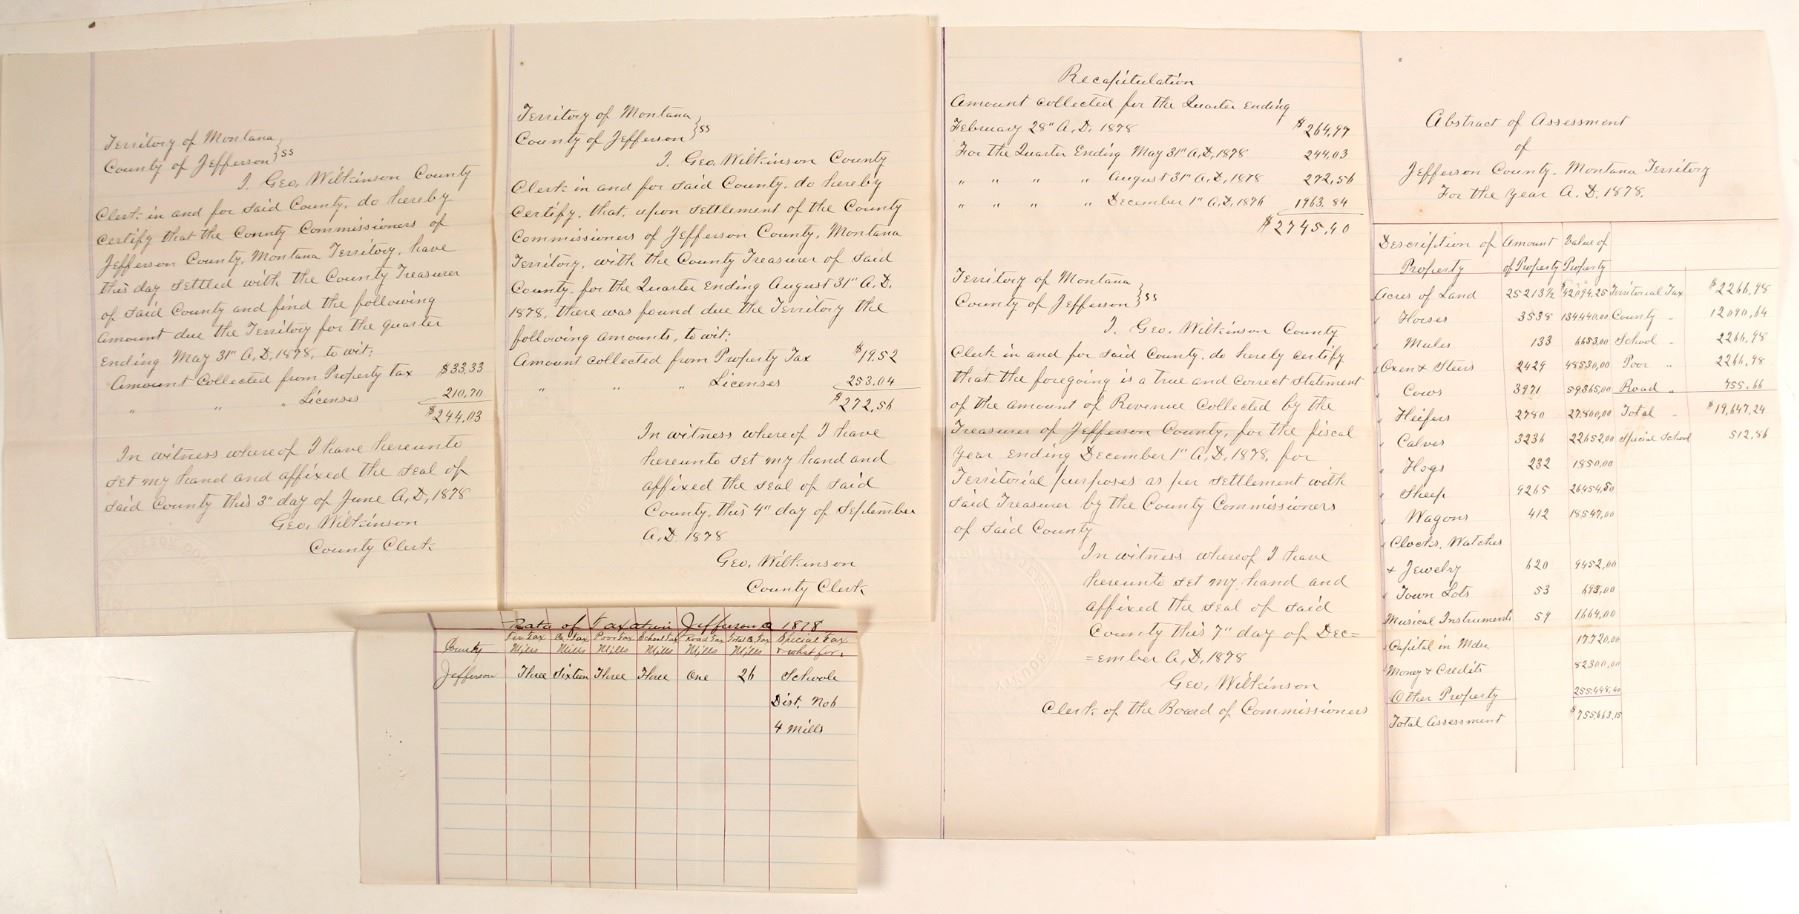 Territory of Montana } ss
County of Jefferson
I. Geo. Wilkinson County
Clerk in and for said County, do hereby
certify that the County Commissioners of
Jefferson County, Montana Territory, have
this day settled with the County Treasurer
of said County and find the following
amount due the Territory for the quarter
Ending May 31" A.D. 1878, to wit:
Amount Collected from Property tax $33.33
" " " Licenses 210.70
$244.03
In witness whereof I have hereunto
set my hand and affixed the seal of
said County this 3" day of June A.D. 1878
Geo. Wilkinson
County Clerk
Territory of Montana } ss
County of Jefferson
I. Geo. Wilkinson County
Clerk in and for said County, do hereby
Certify, that, upon settlement of the County
Commissioners of Jefferson County, Montana
Territory, with the County Treasurer of said
County, for the Quarter Ending August 31" A.D.
1878, there was found due the Territory the
following amounts, to wit:
Amount collected from Property Tax $19.52
" " " Licenses 253.04
$272.56
In witness whereof I have
hereunto set my hand and
affixed the seal of said
County, this 4" day of September
A.D. 1878
Geo. Wilkinson
County Clerk
Rate of Taxation Jefferson Co 1878
County Ter Tax Mills Co. Tax Mills Poor Tax Mills School Tax Mills Road Tax Mills Total Co. Tax Mills Special Tax & what for.
Jefferson Three Sixteen Three Three One 26 Schools
Dist. No 6
4 Mills
Recapitulation
Amount collected for the Quarter Ending
February 28" A.D. 1878 $264.97
For the Quarter Ending May 31" A.D. 1878 244.03
" " " " August 31" A.D. 1878 272.56
" " " " December 1" A.D. 1878 1963.84
$2745.40
Territory of Montana } ss
County of Jefferson
I. Geo. Wilkinson County
Clerk in and for said County, do hereby certify
that the foregoing is a true and correct statement
of the amount of Revenue Collected by the
Treasurer of Jefferson County, for the fiscal
year ending December 1" A.D. 1878, for
Territorial purposes as per settlement with
said Treasurer by the County Commissioners
of said County
In witness whereof I have
hereunto set my hand and
affixed the seal of said
County this 7" day of Dec=
=ember A.D. 1878
Geo. Wilkinson
Clerk of the Board of Commissioners
Abstract of Assessment
of
Jefferson County. Montana Territory
For the Year A.D. 1878.
Description of Amount Value of
Property of Property Property
Acres of Land 25213½ $42094.25 Territorial Tax $2266.98
" Horses 3538 134440.00 County " 12090.64
" Mules 133 6653.00 School " 2266.98
" Oxen & Steers 2429 48530.00 Poor " 2266.98
" Cows 3971 59365.00 Road " 755.66
" Heifers 2780 27800.00 Total " $19,647.24
" Calves 3236 22652.00 Special School 512.86
" Hogs 232 1850.00
" Sheep 9265 26454.50
" Wagons 412 18547.00
" Clocks, Watches
& Jewelry 620 9452.00
" Town Lots 53 693.00
Musical Instruments 59 1664.00
Capital in Mdse 17720.00
Money & Credits 82300.00
Other Property
Total Assessment $755663.15